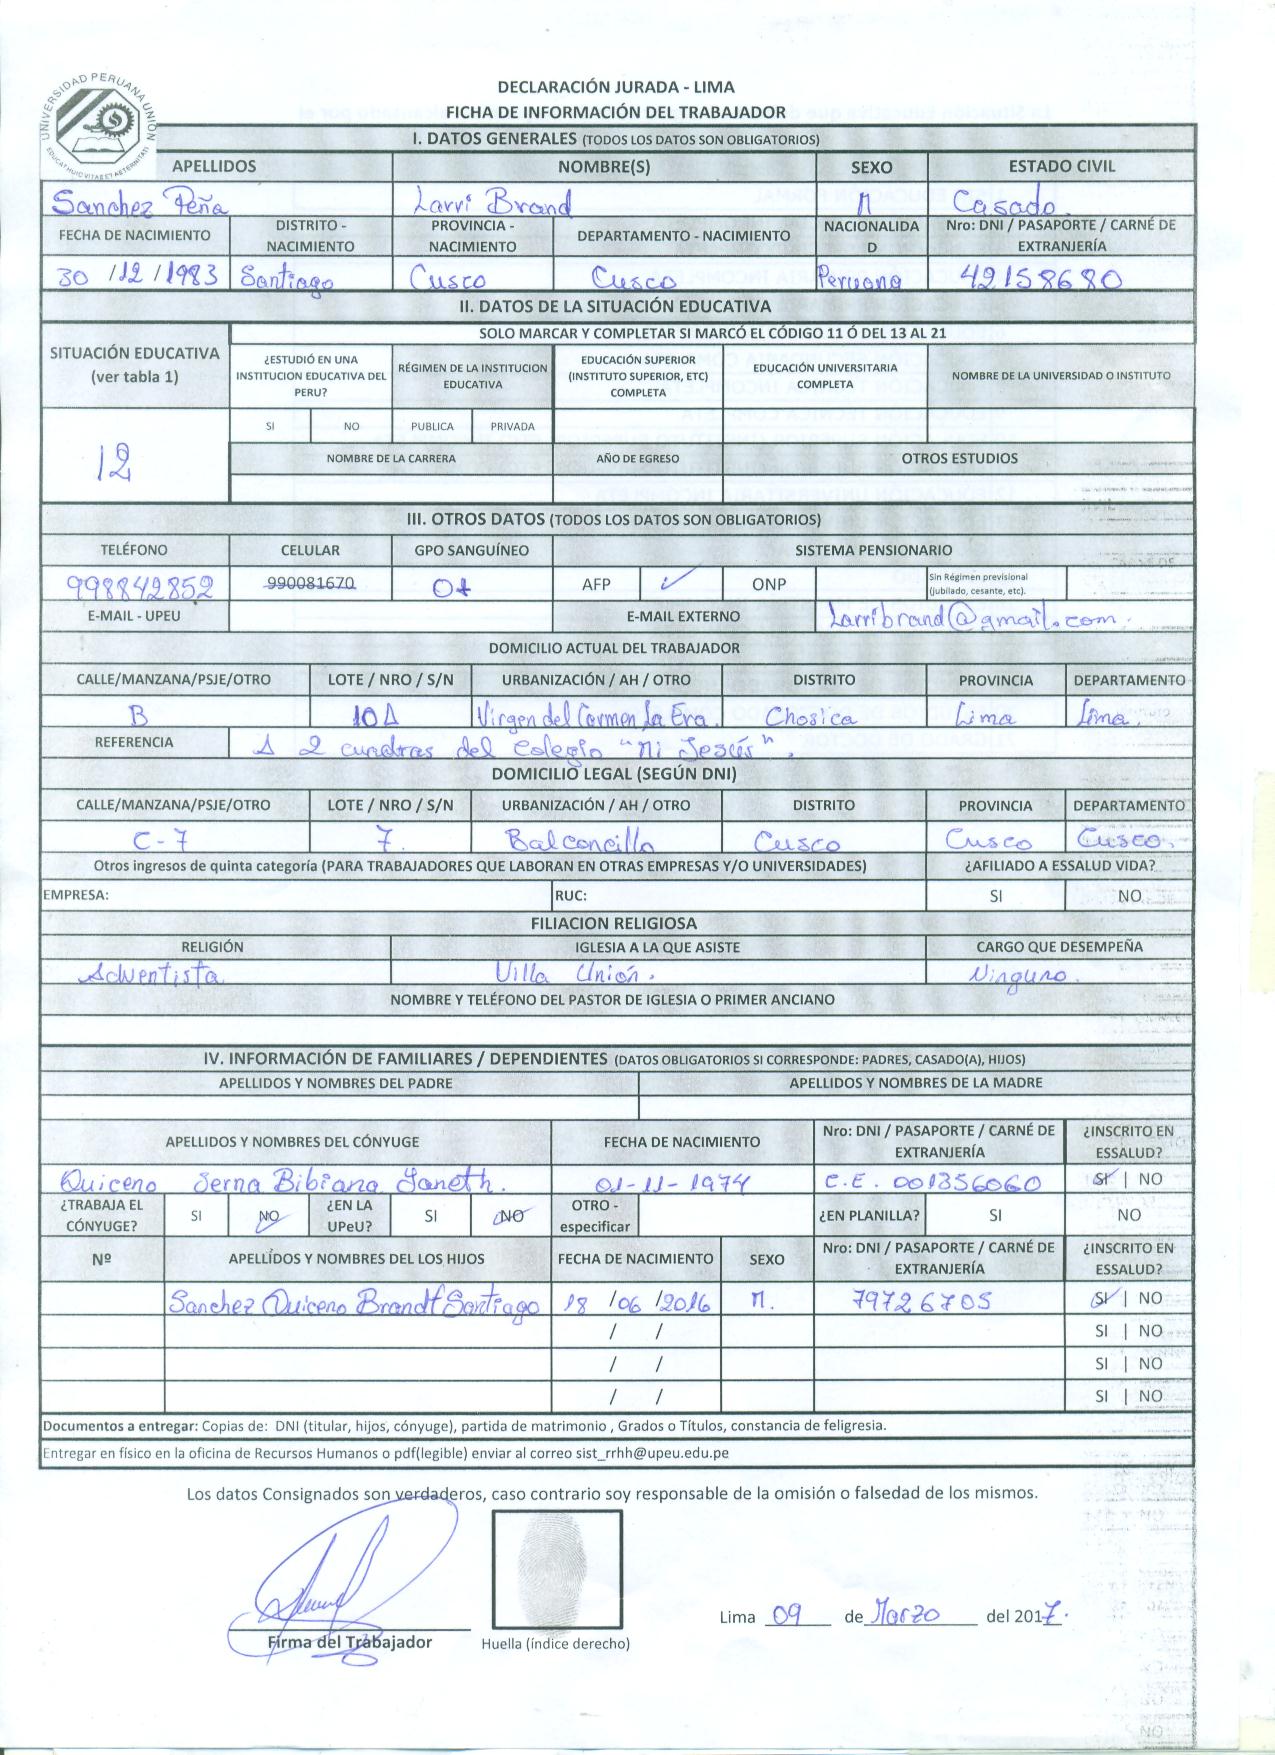 UNIVERSIDAD PERUANA UNION
DECLARACIÓN JURADA - LIMA
FICHA DE INFORMACIÓN DEL TRABAJADOR
I. DATOS GENERALES (TODOS LOS DATOS SON OBLIGATORIOS)
APELLIDOS NOMBRE(S) SEXO ESTADO CIVIL
Sanchez Peña Larri Brand M Casado.
FECHA DE NACIMIENTO DISTRITO - NACIMIENTO PROVINCIA - NACIMIENTO DEPARTAMENTO - NACIMIENTO NACIONALIDAD Nro: DNI / PASAPORTE / CARNÉ DE EXTRANJERÍA
30 /12 /1983 Santiago Cusco Cusco Peruana 42158680
II. DATOS DE LA SITUACIÓN EDUCATIVA
SITUACIÓN EDUCATIVA (ver tabla 1) SOLO MARCAR Y COMPLETAR SI MARCÓ EL CÓDIGO 11 Ó DEL 13 AL 21
¿ESTUDIÓ EN UNA INSTITUCION EDUCATIVA DEL PERU? RÉGIMEN DE LA INSTITUCION EDUCATIVA EDUCACIÓN SUPERIOR (INSTITUTO SUPERIOR, ETC) COMPLETA EDUCACIÓN UNIVERSITARIA COMPLETA NOMBRE DE LA UNIVERSIDAD O INSTITUTO
SI NO PUBLICA PRIVADA
12 NOMBRE DE LA CARRERA AÑO DE EGRESO OTROS ESTUDIOS
III. OTROS DATOS (TODOS LOS DATOS SON OBLIGATORIOS)
TELÉFONO CELULAR GPO SANGUÍNEO SISTEMA PENSIONARIO
998842852 990081670 O+ AFP ✓ ONP Sin Régimen previsional (jubilado, cesante, etc).
E-MAIL - UPEU E-MAIL EXTERNO Larribrand@gmail.com.
DOMICILIO ACTUAL DEL TRABAJADOR
CALLE/MANZANA/PSJE/OTRO LOTE / NRO / S/N URBANIZACIÓN / AH / OTRO DISTRITO PROVINCIA DEPARTAMENTO
B 10A Virgen del Carmen La Era. Chosica Lima Lima.
REFERENCIA A 2 cuadras del colegio "Mi Jesús".
DOMICILIO LEGAL (SEGÚN DNI)
CALLE/MANZANA/PSJE/OTRO LOTE / NRO / S/N URBANIZACIÓN / AH / OTRO DISTRITO PROVINCIA DEPARTAMENTO
C-7 7. Balconcillo Cusco Cusco Cusco.
Otros ingresos de quinta categoría (PARA TRABAJADORES QUE LABORAN EN OTRAS EMPRESAS Y/O UNIVERSIDADES) ¿AFILIADO A ESSALUD VIDA?
EMPRESA: RUC: SI NO
FILIACION RELIGIOSA
RELIGIÓN IGLESIA A LA QUE ASISTE CARGO QUE DESEMPEÑA
Adventista Villa Unión. Ninguno.
NOMBRE Y TELÉFONO DEL PASTOR DE IGLESIA O PRIMER ANCIANO
IV. INFORMACIÓN DE FAMILIARES / DEPENDIENTES (DATOS OBLIGATORIOS SI CORRESPONDE: PADRES, CASADO(A), HIJOS)
APELLIDOS Y NOMBRES DEL PADRE APELLIDOS Y NOMBRES DE LA MADRE
APELLIDOS Y NOMBRES DEL CÓNYUGE FECHA DE NACIMIENTO Nro: DNI / PASAPORTE / CARNÉ DE EXTRANJERÍA ¿INSCRITO EN ESSALUD?
Quiceno Serna Bibiana Janeth. 01-11-1974 C.E. 001356060 SI | NO
¿TRABAJA EL CÓNYUGE? SI NO ¿EN LA UPeU? SI NO OTRO - especificar ¿EN PLANILLA? SI NO
Nº APELLIDOS Y NOMBRES DEL LOS HIJOS FECHA DE NACIMIENTO SEXO Nro: DNI / PASAPORTE / CARNÉ DE EXTRANJERÍA ¿INSCRITO EN ESSALUD?
Sanchez Quiceno Brandt Santiago 18 /06 /2016 M. 79726705 SI | NO
/ / SI | NO
/ / SI | NO
/ / SI | NO
Documentos a entregar: Copias de: DNI (titular, hijos, cónyuge), partida de matrimonio , Grados o Títulos, constancia de feligresia.
Entregar en físico en la oficina de Recursos Humanos o pdf(legible) enviar al correo sist_rrhh@upeu.edu.pe
Los datos Consignados son verdaderos, caso contrario soy responsable de la omisión o falsedad de los mismos.
Lima 09 de Marzo del 2017.
Firma del Trabajador Huella (índice derecho)